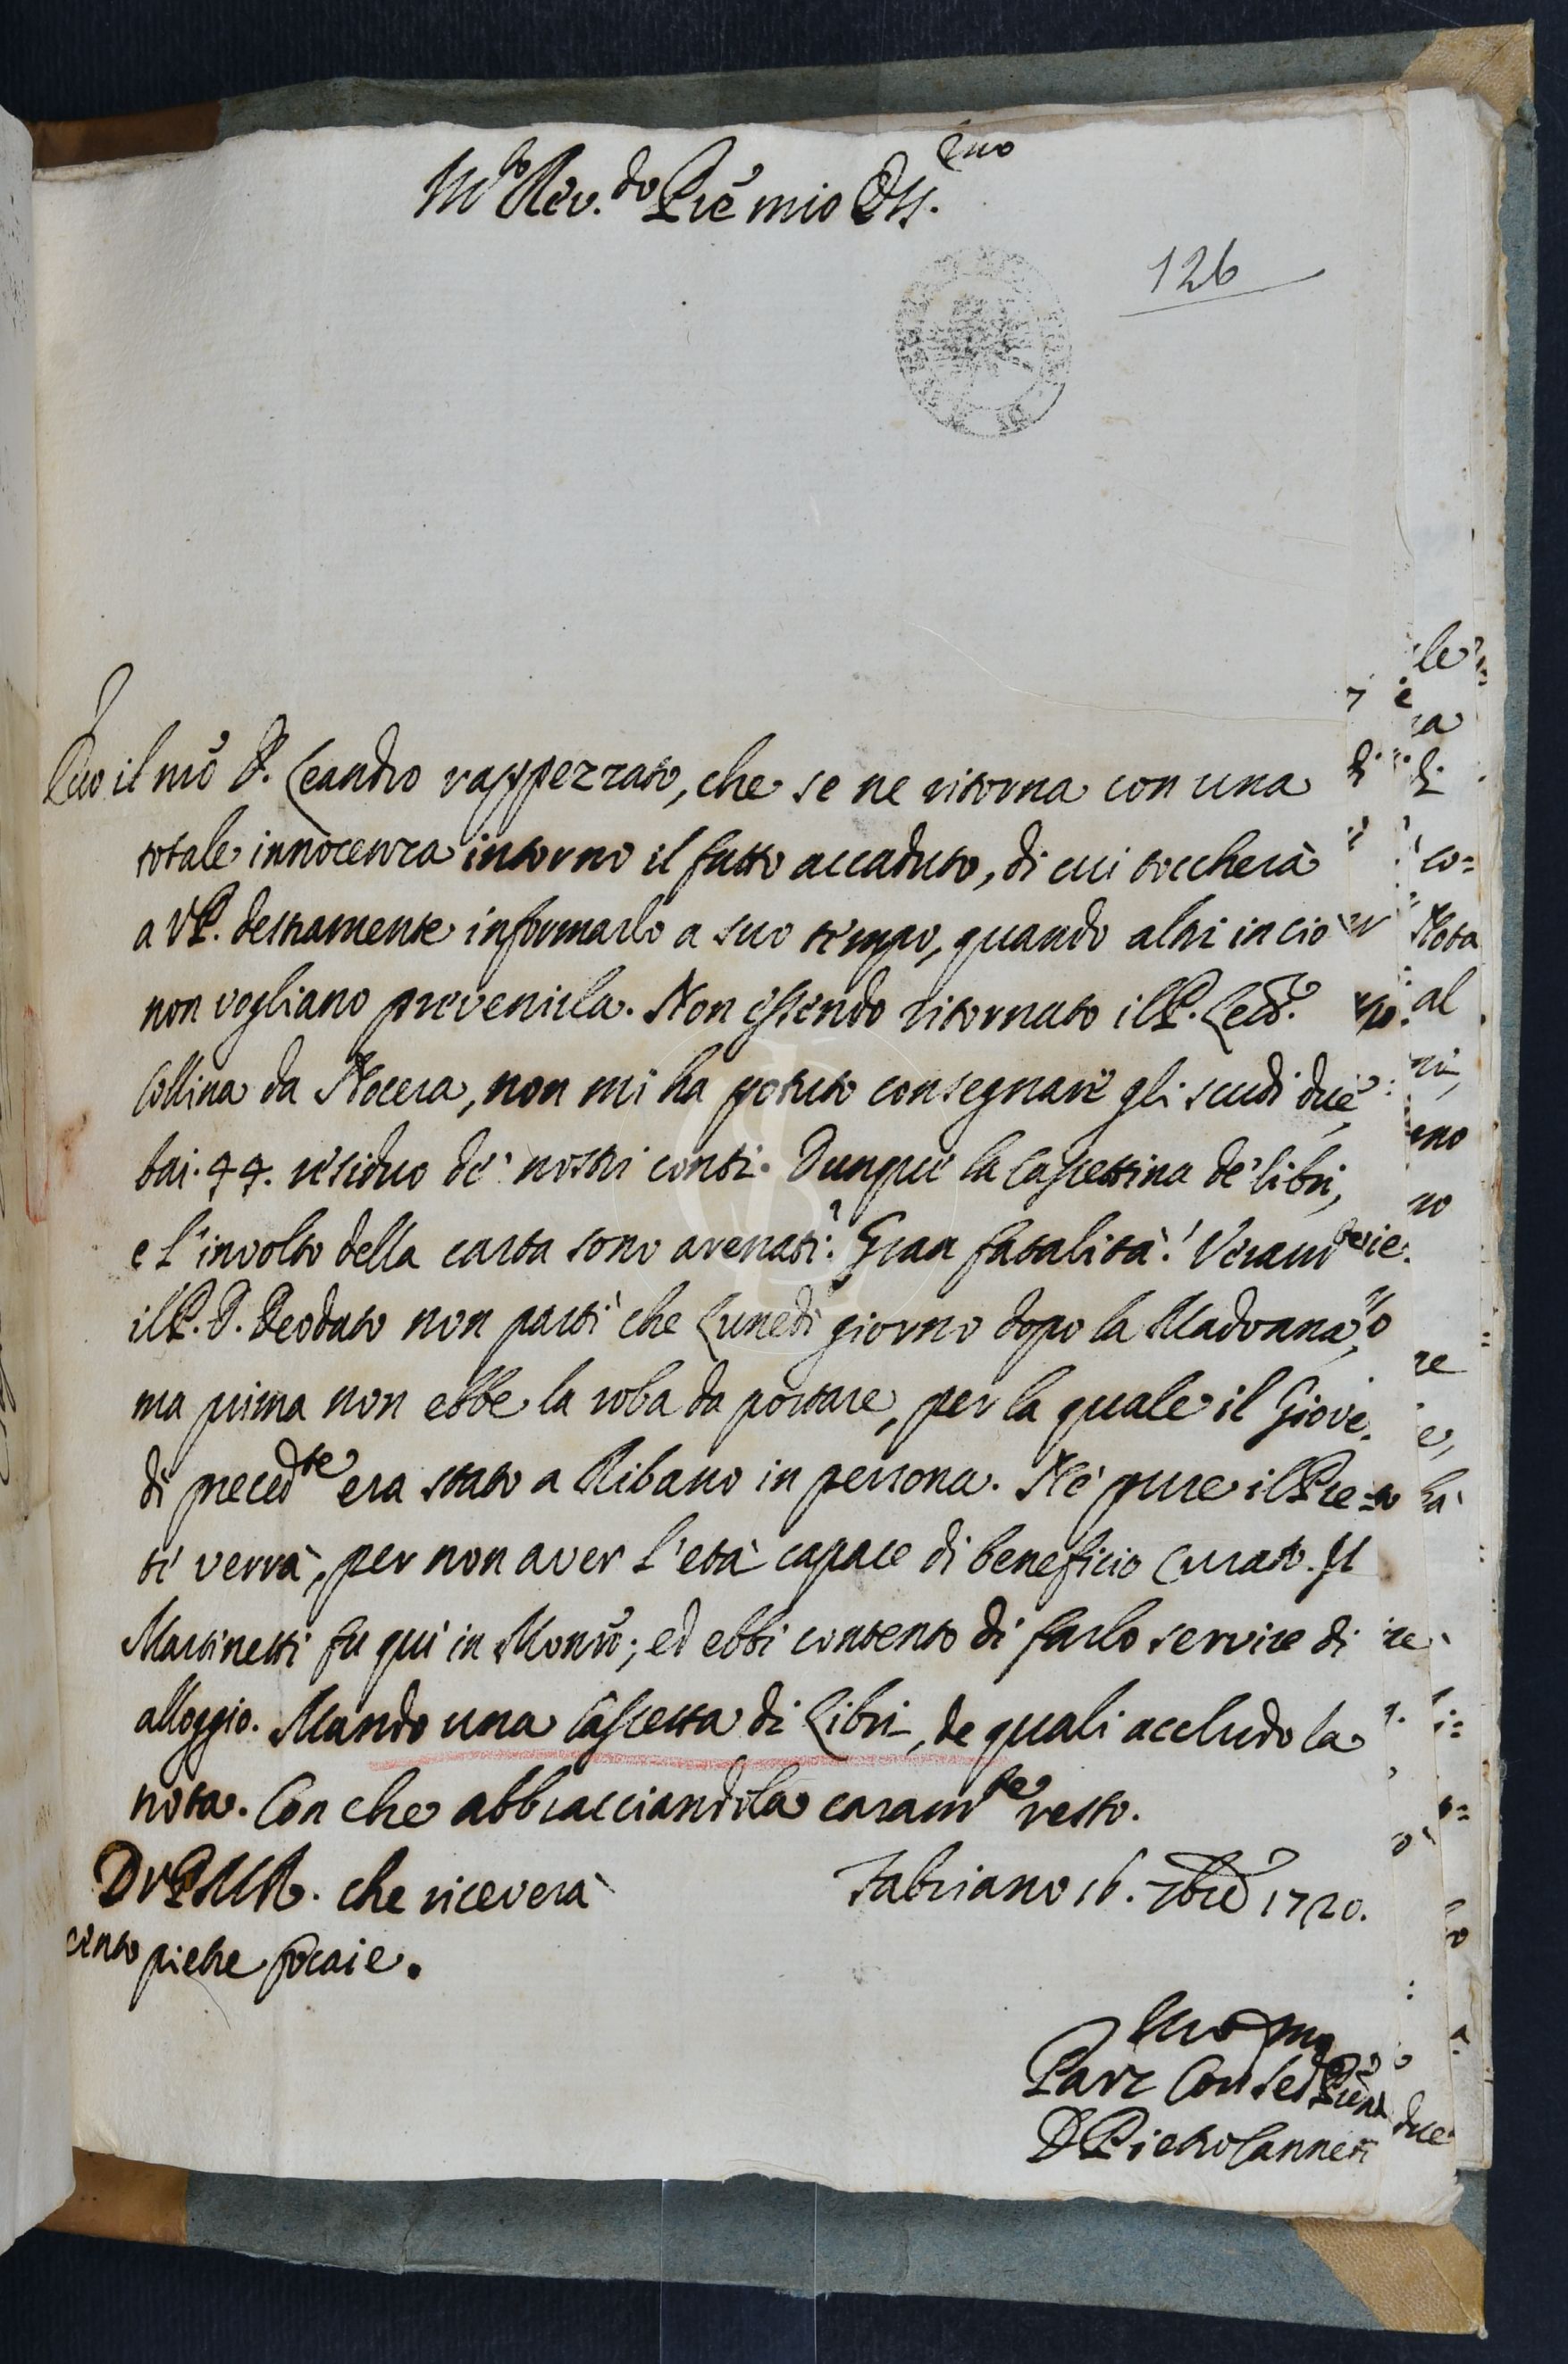 M.to Rev.do Prē mio Oss.mo
126
Ecco il nrō P. Leandro rappezzato, che se ne ritorna con una
totale innocenza intorno il fatto accaduto, di cui toccherà
a VP. destramente informarlo a suo tempo, quando altri in ciò
non vogliano prevenirla. Non essendo ritornato il P. Lett.e
Collina da Nocera, non mi ha potuto consegnare gli scudi due,
bai. 44. residuo de' nostri conti. Dunque la Cassettina de' libri,
e l'involto della carta sono arenati? Gran fatalità! Veram.te
il P. D. Deodato non partì che Lunedì giorno dopo la Madonna,
ma prima non ebbe la roba da portare, per la quale il Giove.
dì preced.te era stato a Ribano in persona. Nè pure il Pre=
ti verrà, per non aver l'età capace di beneficio Curato. Il
Martinetti fu qui in Monrō; ed ebbi contento di farlo servire di
alloggio. Mando una Cassetta di Libri, de quali accludo la
nota. Con che abbracciandola caram.te resto.
D VPMR. che riceverà
cento pietre focaie.
Fabriano 16. 7bre 1720.
D Pietro Canneti
le
di
co=
Nota
al
no
re
due